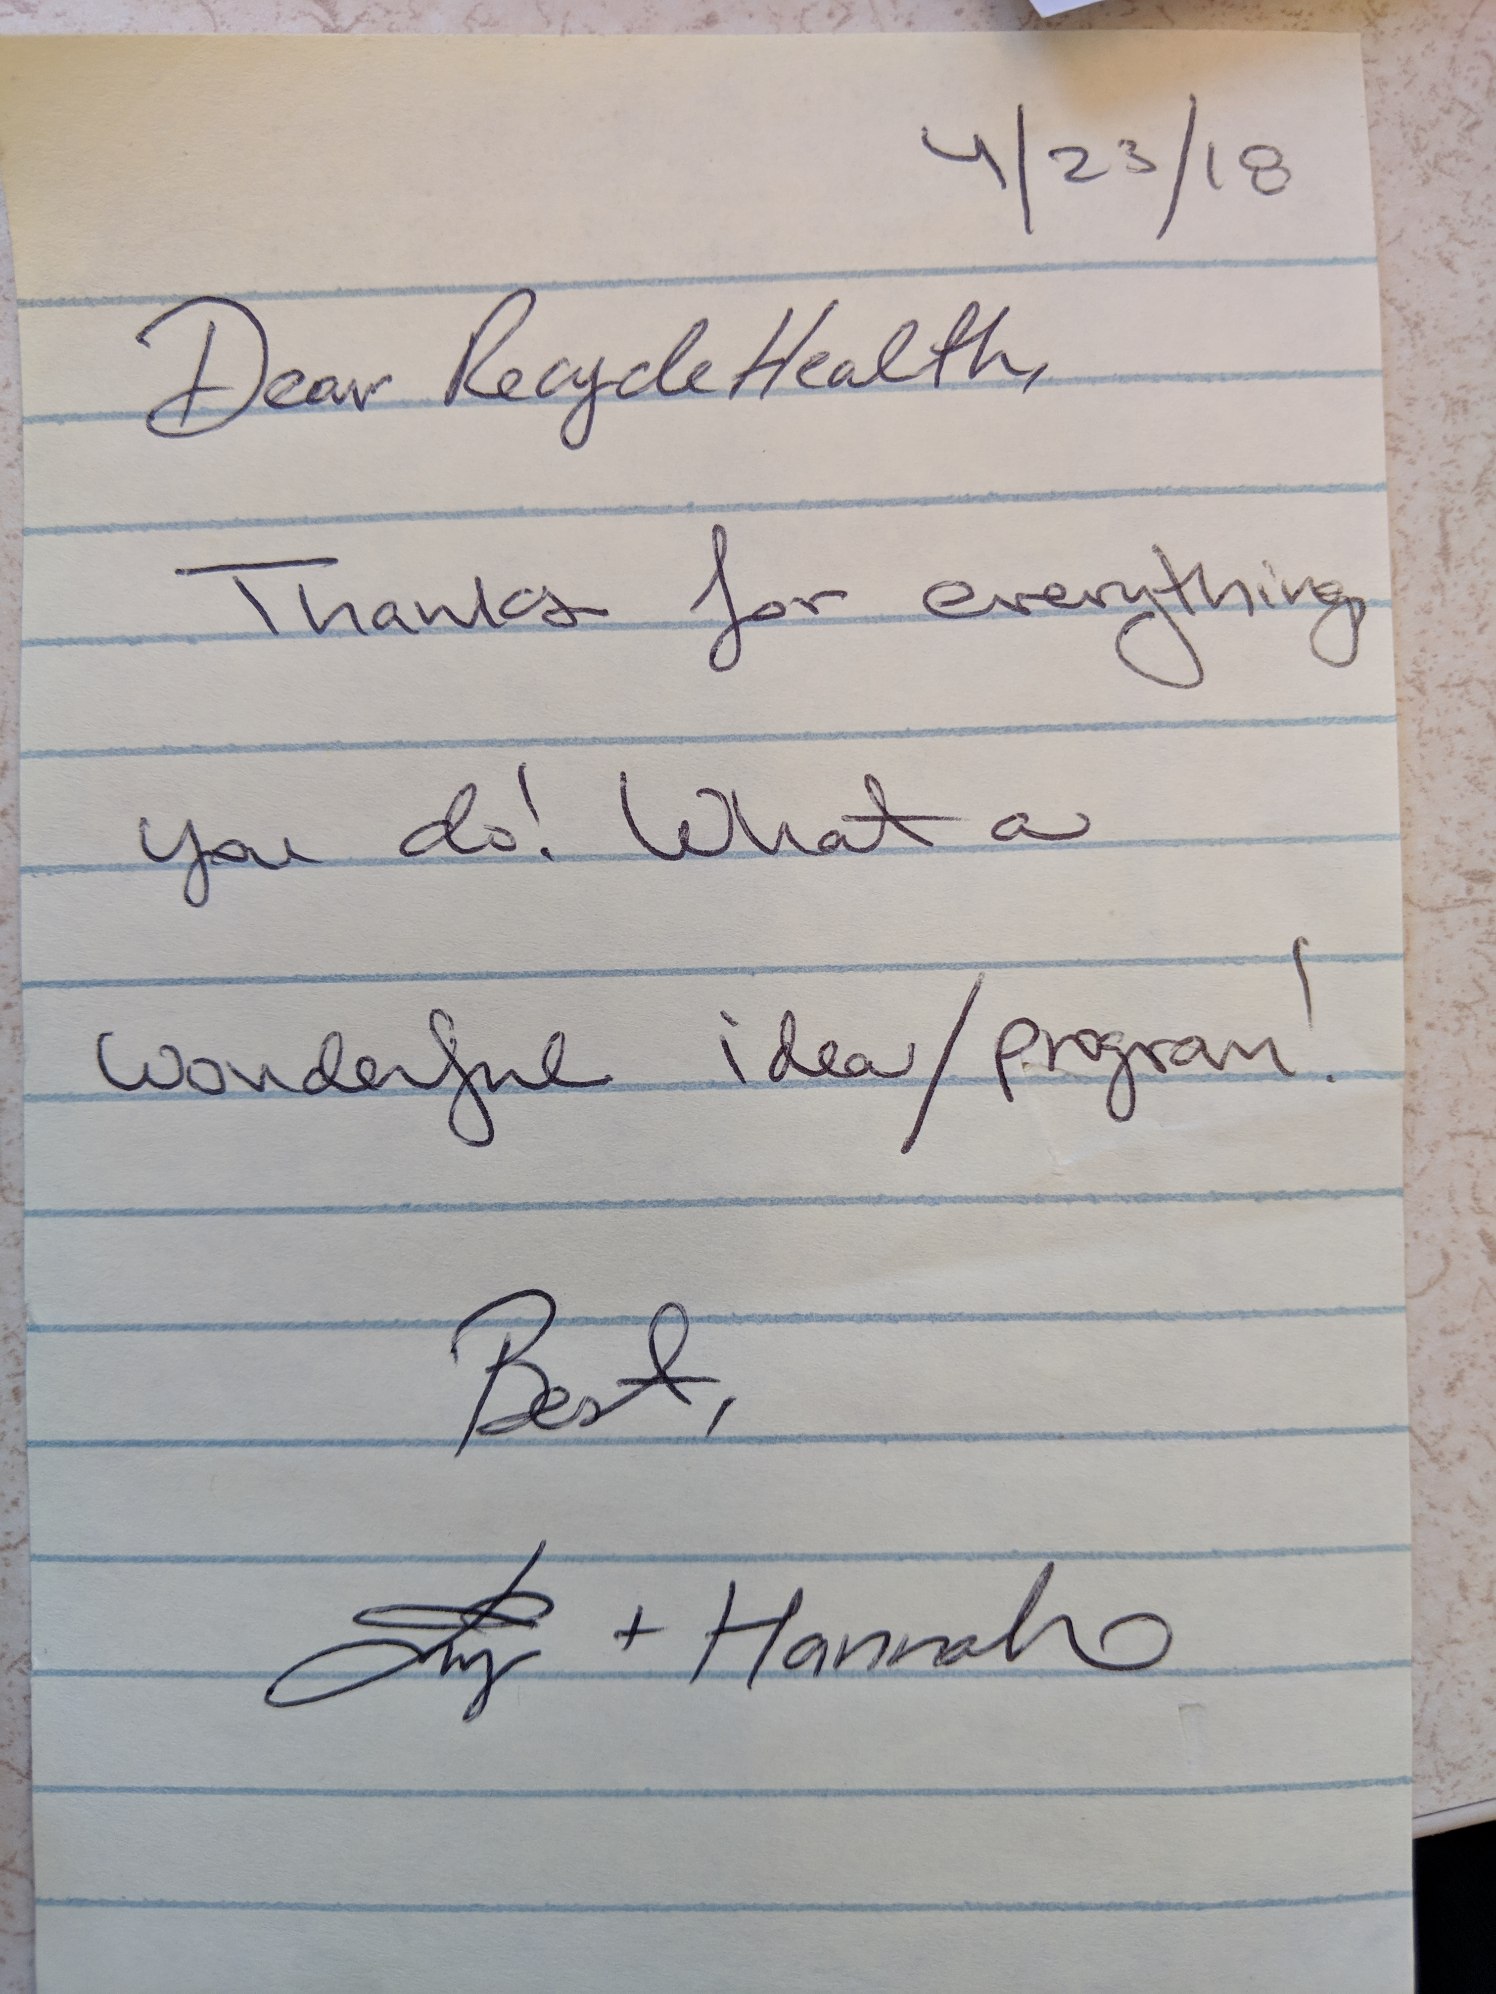 4/23/18
Dear RecycleHealth,
Thanks for everything
you do! What a
wonderful idea/program!
Best,
+ Hannah